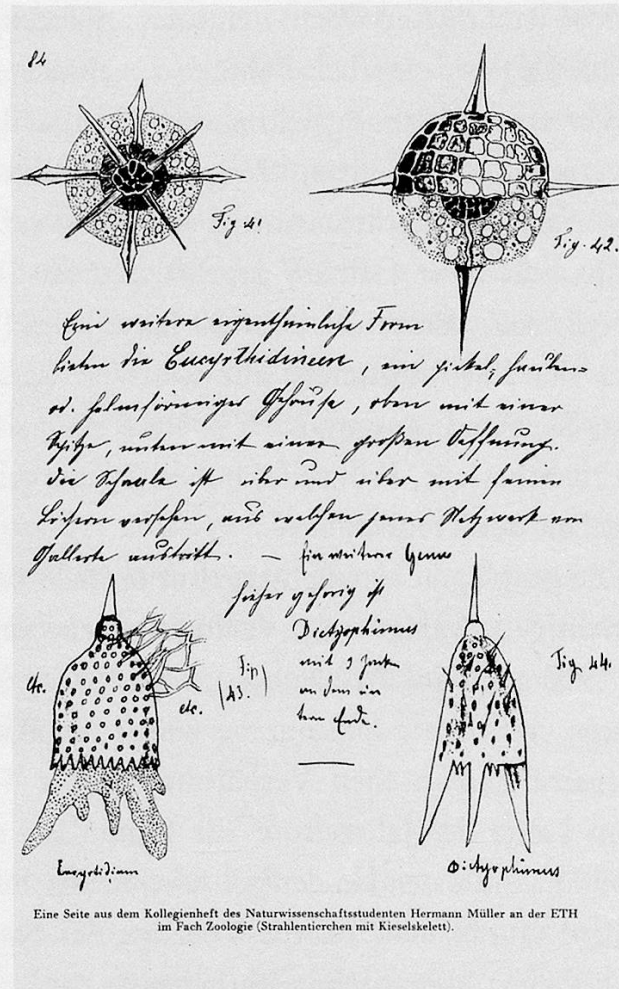 84
Fig. 41
Fig. 42.
Eine weitere eigenthümliche Form
bieten die Eucyrthidineen, ein pickel-, hauben-
od. helmförmiges Gehäuse, oben mit einer
Spitze, unten mit einer großen Oeffnung.
Die Schaale ist über und über mit feinen
Löchern versehen, aus welchen jenes Netzwerk von
Gallerte austritt. — Ein weiteres Genus
hieher gehörig ist
Dictyophimus
mit 3 Zack
an dem un
tern Ende.
etc.
etc.
Fig.
(43.)
Fig. 44.
Eucyrtidium
Dictyophimus
Eine Seite aus dem Kollegienheft des Naturwissenschaftsstudenten Hermann Müller an der ETH
im Fach Zoologie (Strahlentierchen mit Kieselskelett).